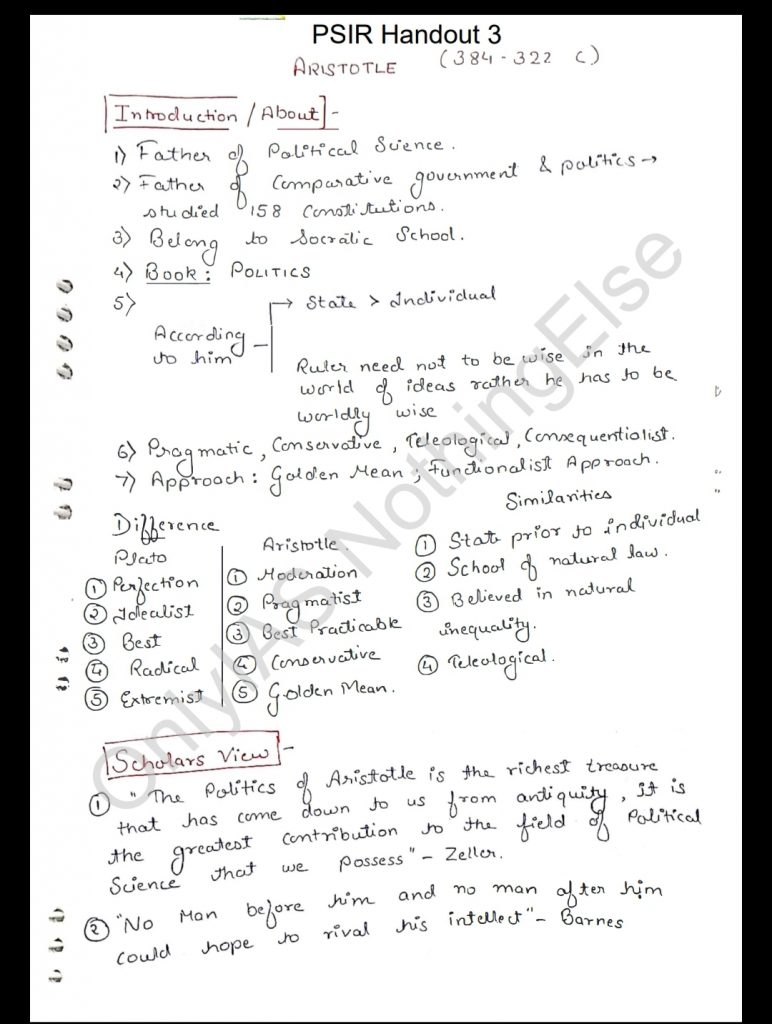 PSIR Handout 3
ARISTOTLE (384-322 C)
Introduction / About :-
1) Father of Political Science.
2) Father of Comparative government & politics →
studied 158 Constitutions.
3) Belong to Socratic School.
4) Book : POLITICS
5)
→ State > Individual
According
to him
Ruler need not to be wise in the
world of ideas rather he has to be
worldly wise
6) Pragmatic, Conservative, Teleological, Consequentialist.
7) Approach : Golden Mean ; Functionalist Approach.
Difference
Plato
① Perfection
② Idealist
③ Best
④ Radical
⑤ Extremist
Aristotle.
① Moderation
② Pragmatist
③ Best Practicable
④ Conservative
⑤ Golden Mean.
Similarities
① State prior to individual
② School of natural law.
③ Believed in natural
inequality.
④ Teleological.
Scholars View :-
① "The Politics of Aristotle is the richest treasure
that has come down to us from antiquity, It is
the greatest contribution to the field of Political
Science that we possess" - Zeller.
② "No Man before him and no man after him
could hope to rival his intellect" - Barnes
OnlyIAS NothingElse